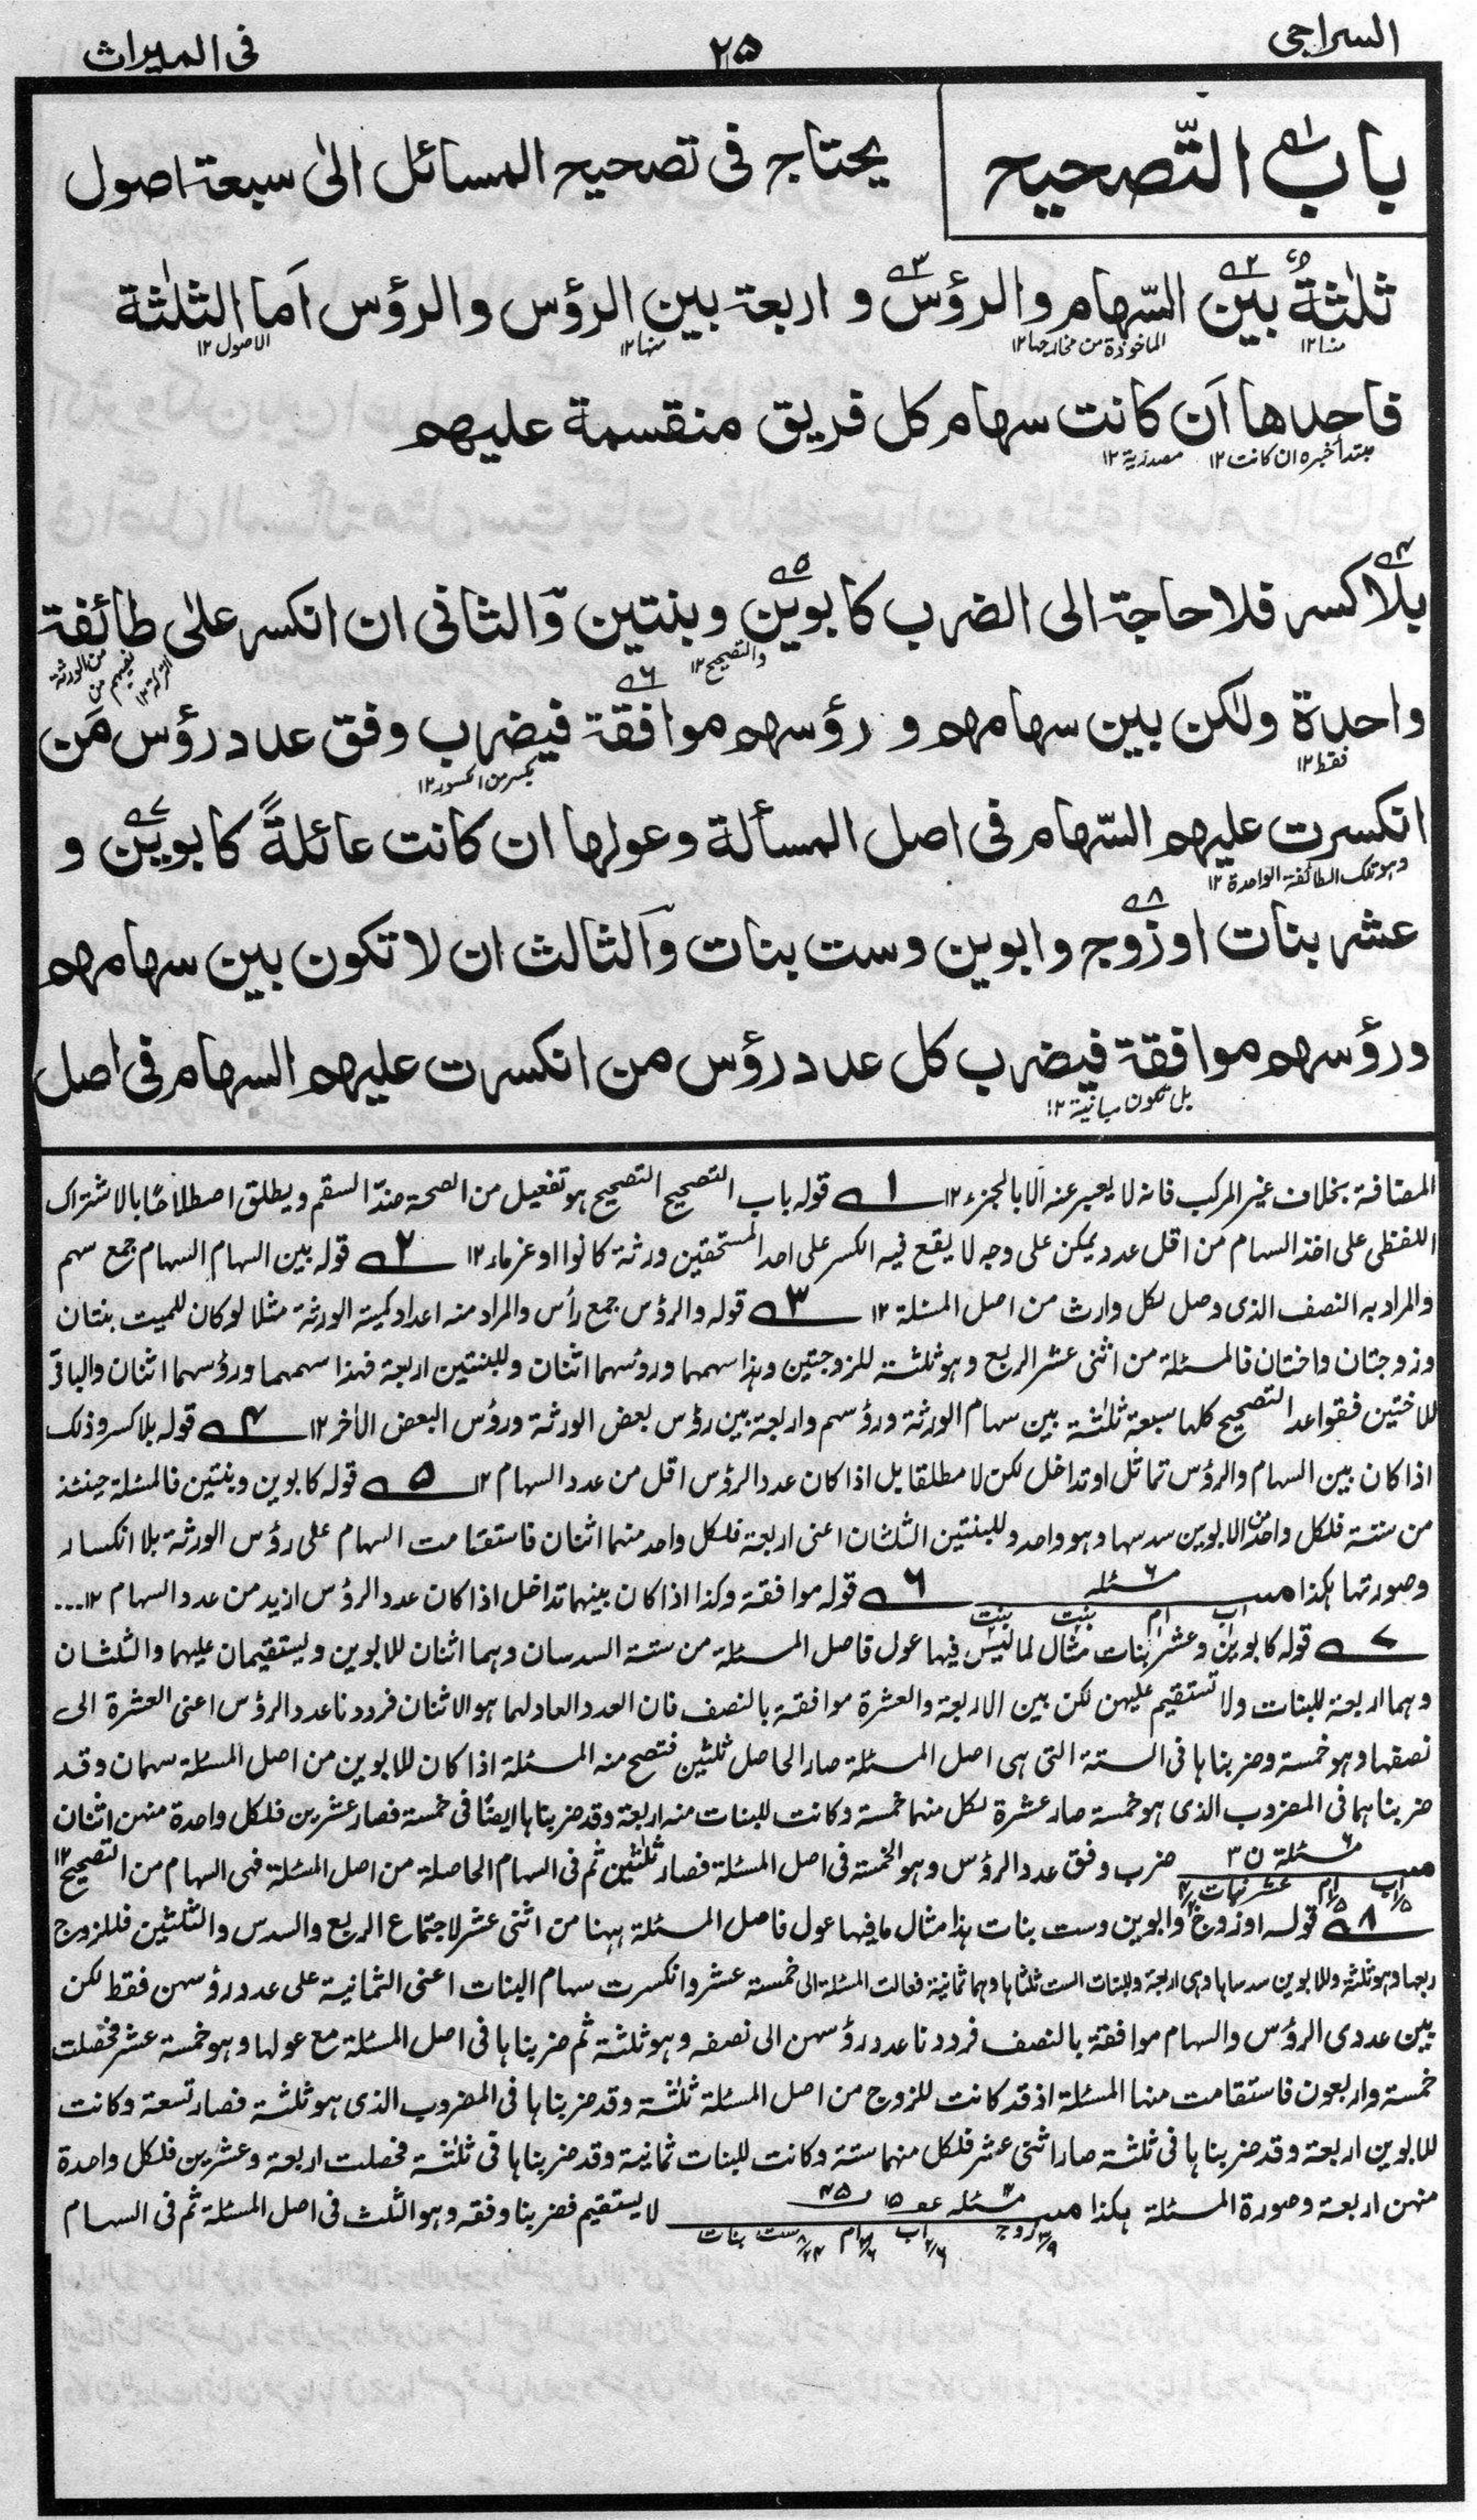 السراجی
٢٥
فی المیراث
باب التّصحیح
یحتاج فی تصحیح المسائل الیٰ سبعۃ اصول
ثلٰثۃٌ بین السّهام والرؤس و اربعۃ بین الرؤس والرؤس اَما الثلٰثۃ
منها١٢ الماخوذة من مخارجها١٢ منها١٢ الاصول١٢
فاحدها اَن کانت سهام کل فریق منقسمة علیهم
مبتدأ خبره ان کانت١٢ مصدریة١٢
بلا کسر فلا حاجۃ الی الضرب کابوین وبنتین وَالثانی ان انکسر علیٰ طائفۃ
والتصحیح١٢ من الورثة
واحدة ولٰکن بین سهامهم و رؤسهم موافقۃ فیضرب وفق عدد رؤس مَن
فقط١٢ بکسر من الکسور١٢
انکسرت علیهم السّهام فی اصل المسألة وعولها ان کانت عائلةً کابوین و
وهو تلک الطائفۃ الواحدة١٢
عشر بنات اوزوج وابوین وست بنات وَالثالث ان لا تکون بین سهامهم
ورؤسهم موافقۃ فیضرب کل عدد رؤس من انکسرت علیهم السهام فی اصل
بل تکون مباینة١٢
المضافة بخلاف غیر المرکب فانه لا یعبر عنه الا بالجزء١٢ ١ قوله باب التصحیح التصحیح هو تفعیل من الصحة ضدّ السقم ویطلق اصطلاحًا بالاشتراک
اللفظی علی اخذ السهام من اقل عدد یمکن علی وجه لا یقع فیه الکسر علی احد المستحقین ورثة کانوا او غرماء١٢ ٢ قوله بین السهام السهام جمع سهم
والمراد به النصف الذی وصل لکل وارث من اصل المسئلة١٢ ٣ قوله والرؤس جمع رأس والمراد منه اعداد کمیة الورثة مثلا لو کان للمیت بنتان
وزوجتان واختان فالمسئلة من اثنی عشر الربع وهو ثلثۃ للزوجتین وهذا سهمهما ورؤسهما اثنان وللبنتین اربعة فهذا سهمهما ورؤسهما اثنان والباقی
للاختین فقواعد التصحیح کلها سبعة ثلٰثۃ بین سهام الورثة ورؤسهم واربعة بین رؤس بعض الورثة ورؤس البعض الأخر١٢ ٤ قوله بلا کسر وذلک
اذا کان بین السهام والرؤس تماثل او تداخل لکن لا مطلقا بل اذا کان عدد الرؤس اقل من عدد السهام١٢ ٥ قوله کابوین وبنتین فالمسئلة حینئذ
من ستة فلکل واحد من الابوین سدسها وهو واحد وللبنتین الثلثان اعنی اربعة فلکل واحد منهما اثنان فاستقامت السهام علی رؤس الورثة بلا انکسار
وصورتها هکذا میـ مسئله ٦ ٦ قوله موافقة وکذا اذا کان بینهما تداخل اذا کان عدد الرؤس ازید من عدد السهام١٢...
اب ام بنت بنت
٧ قوله کابوین وعشر بنات مثال لما لیس فیها عول فاصل المسئلة من ستة السدسان وهما اثنان للابوین ویستقیمان علیهما والثلثان
وهما اربعة للبنات ولا تستقیم علیهن لکن بین الاربعة والعشرة موافقة بالنصف فان العدد العاد لهما هو الاثنان فرددنا عدد الرؤس اعنی العشرة الی
نصفها وهو خمسة وضربناها فی الستة التی هی اصل المسئلة صار الحاصل ثلثین فتصح منه المسئلة اذا کان للابوین من اصل المسئلة سهمان وقد
ضربناهما فی المضروب الذی هو خمسة صار عشرة لکل منهما خمسة وکانت للبنات منه اربعة وقد ضربناها ایضًا فی خمسة فصار عشرین فلکل واحدة منهن اثنان
میـ مسئلة ٦ ن ٣ ضرب وفق عدد الرؤس وهو الخمسة فی اصل المسئلة فصار ثلٰثین ثم فی السهام الحاصلة من اصل المسئلة فهی السهام من التصحیح١٢
اب ١/٥ ام ١/٥ عشر بنات
٨ قوله او زوج وابوین وست بنات هذا مثال ما فیها عول فاصل المسئلة ههنا من اثنی عشر لاجتماع الربع والسدس والثلثین فللزوج
ربعها وهو ثلثة وللابوین سدساها وهی اربعة وللبنات الست ثلثاها وهما ثمانیة فعالت المسئلة الی خمسة عشر وانکسرت سهام البنات اعنی الثمانیة علی عدد رؤسهن فقط لکن
بین عددی الرؤس والسهام موافقة بالنصف فرددنا عدد رؤسهن الی نصفه وهو ثلثة ثم ضربناها فی اصل المسئلة مع عولها وهو خمسة عشر فحصلت
خمسة واربعون فاستقامت منها المسئلة اذ قد کانت للزوج من اصل المسئلة ثلٰثۃ وقد ضربناها فی المضروب الذی هو ثلثۃ فصار تسعة وکانت
للابوین اربعة وقد ضربناها فی ثلثۃ صار اثنی عشر فلکل منهما ستة وکانت للبنات ثمانیة وقد ضربناها فی ثلٰثۃ فحصلت اربعة وعشرین فلکل واحدة
منهن اربعة وصورة المسئلة هکذا میـ مسئله عو ١٥ ٤٥ لا یستقیم فضربنا وفقه وهو الثلث فی اصل المسئلة ثم فی السهام
زوج ٣/٩ اب ٢/٦ ام ٢/٦ ست بنات ٨/٢٤